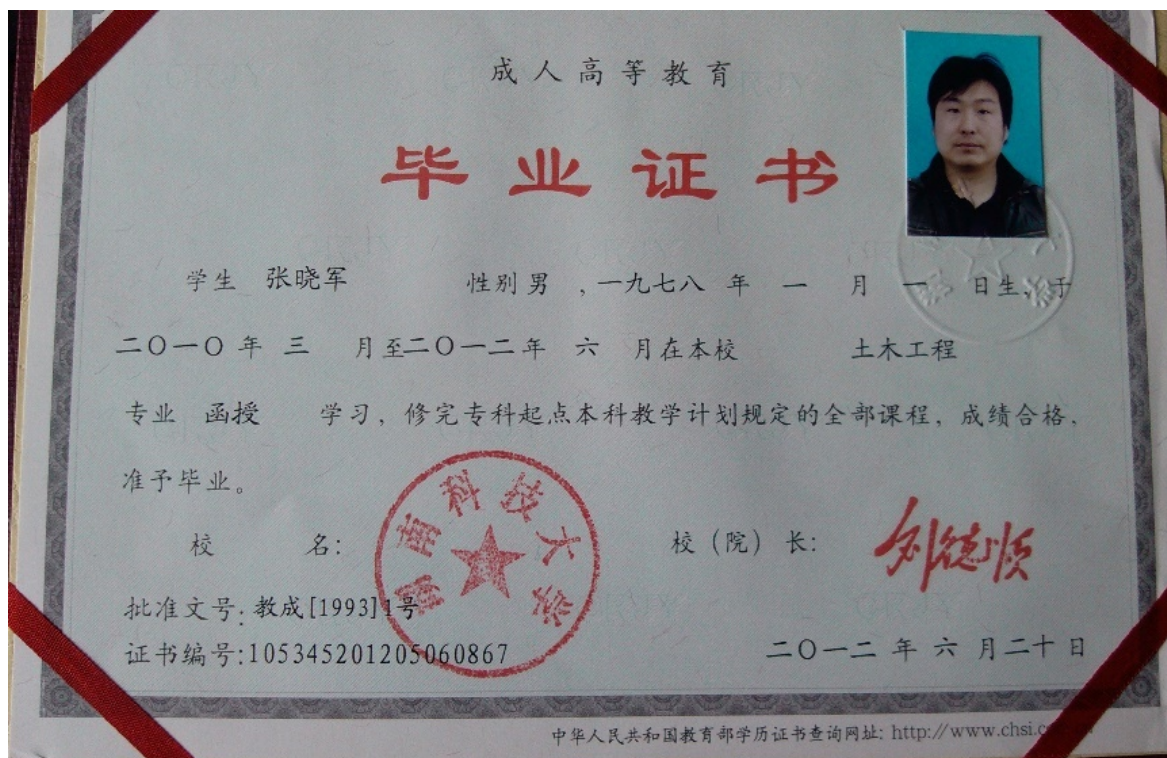 成人高等教育
毕业证书
学生 张晓军 性别 男 ,一九七八 年 一 月 一 日生,于
二〇一〇 年 三 月至二〇一二年 六 月在本校 土木工程
专业 函授 学习，修完专科起点本科教学计划规定的全部课程，成绩合格，
准予毕业。
校 名: 校（院）长: 刘德顺
湖南科技大学
批准文号: 教成[1993]1号
证书编号:105345201205060867 二〇一二 年 六 月二十日
中华人民共和国教育部学历证书查询网址: http://www.chsi.c